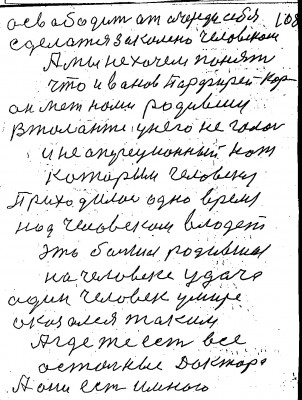 освабодит от очереди себя 108
сделатся законено человеком
А мы не хочем понят
что иванов Парфирей Кор
он меж нами родивши
В таланте у него не голог
и не операцийонный нож
которым человеку
Приходилос одно время
над человеком владет
это божия родивши
на человеке удача
один человек умире
оказался таким
А где же ест все
осталные Доктора
А они ест имного